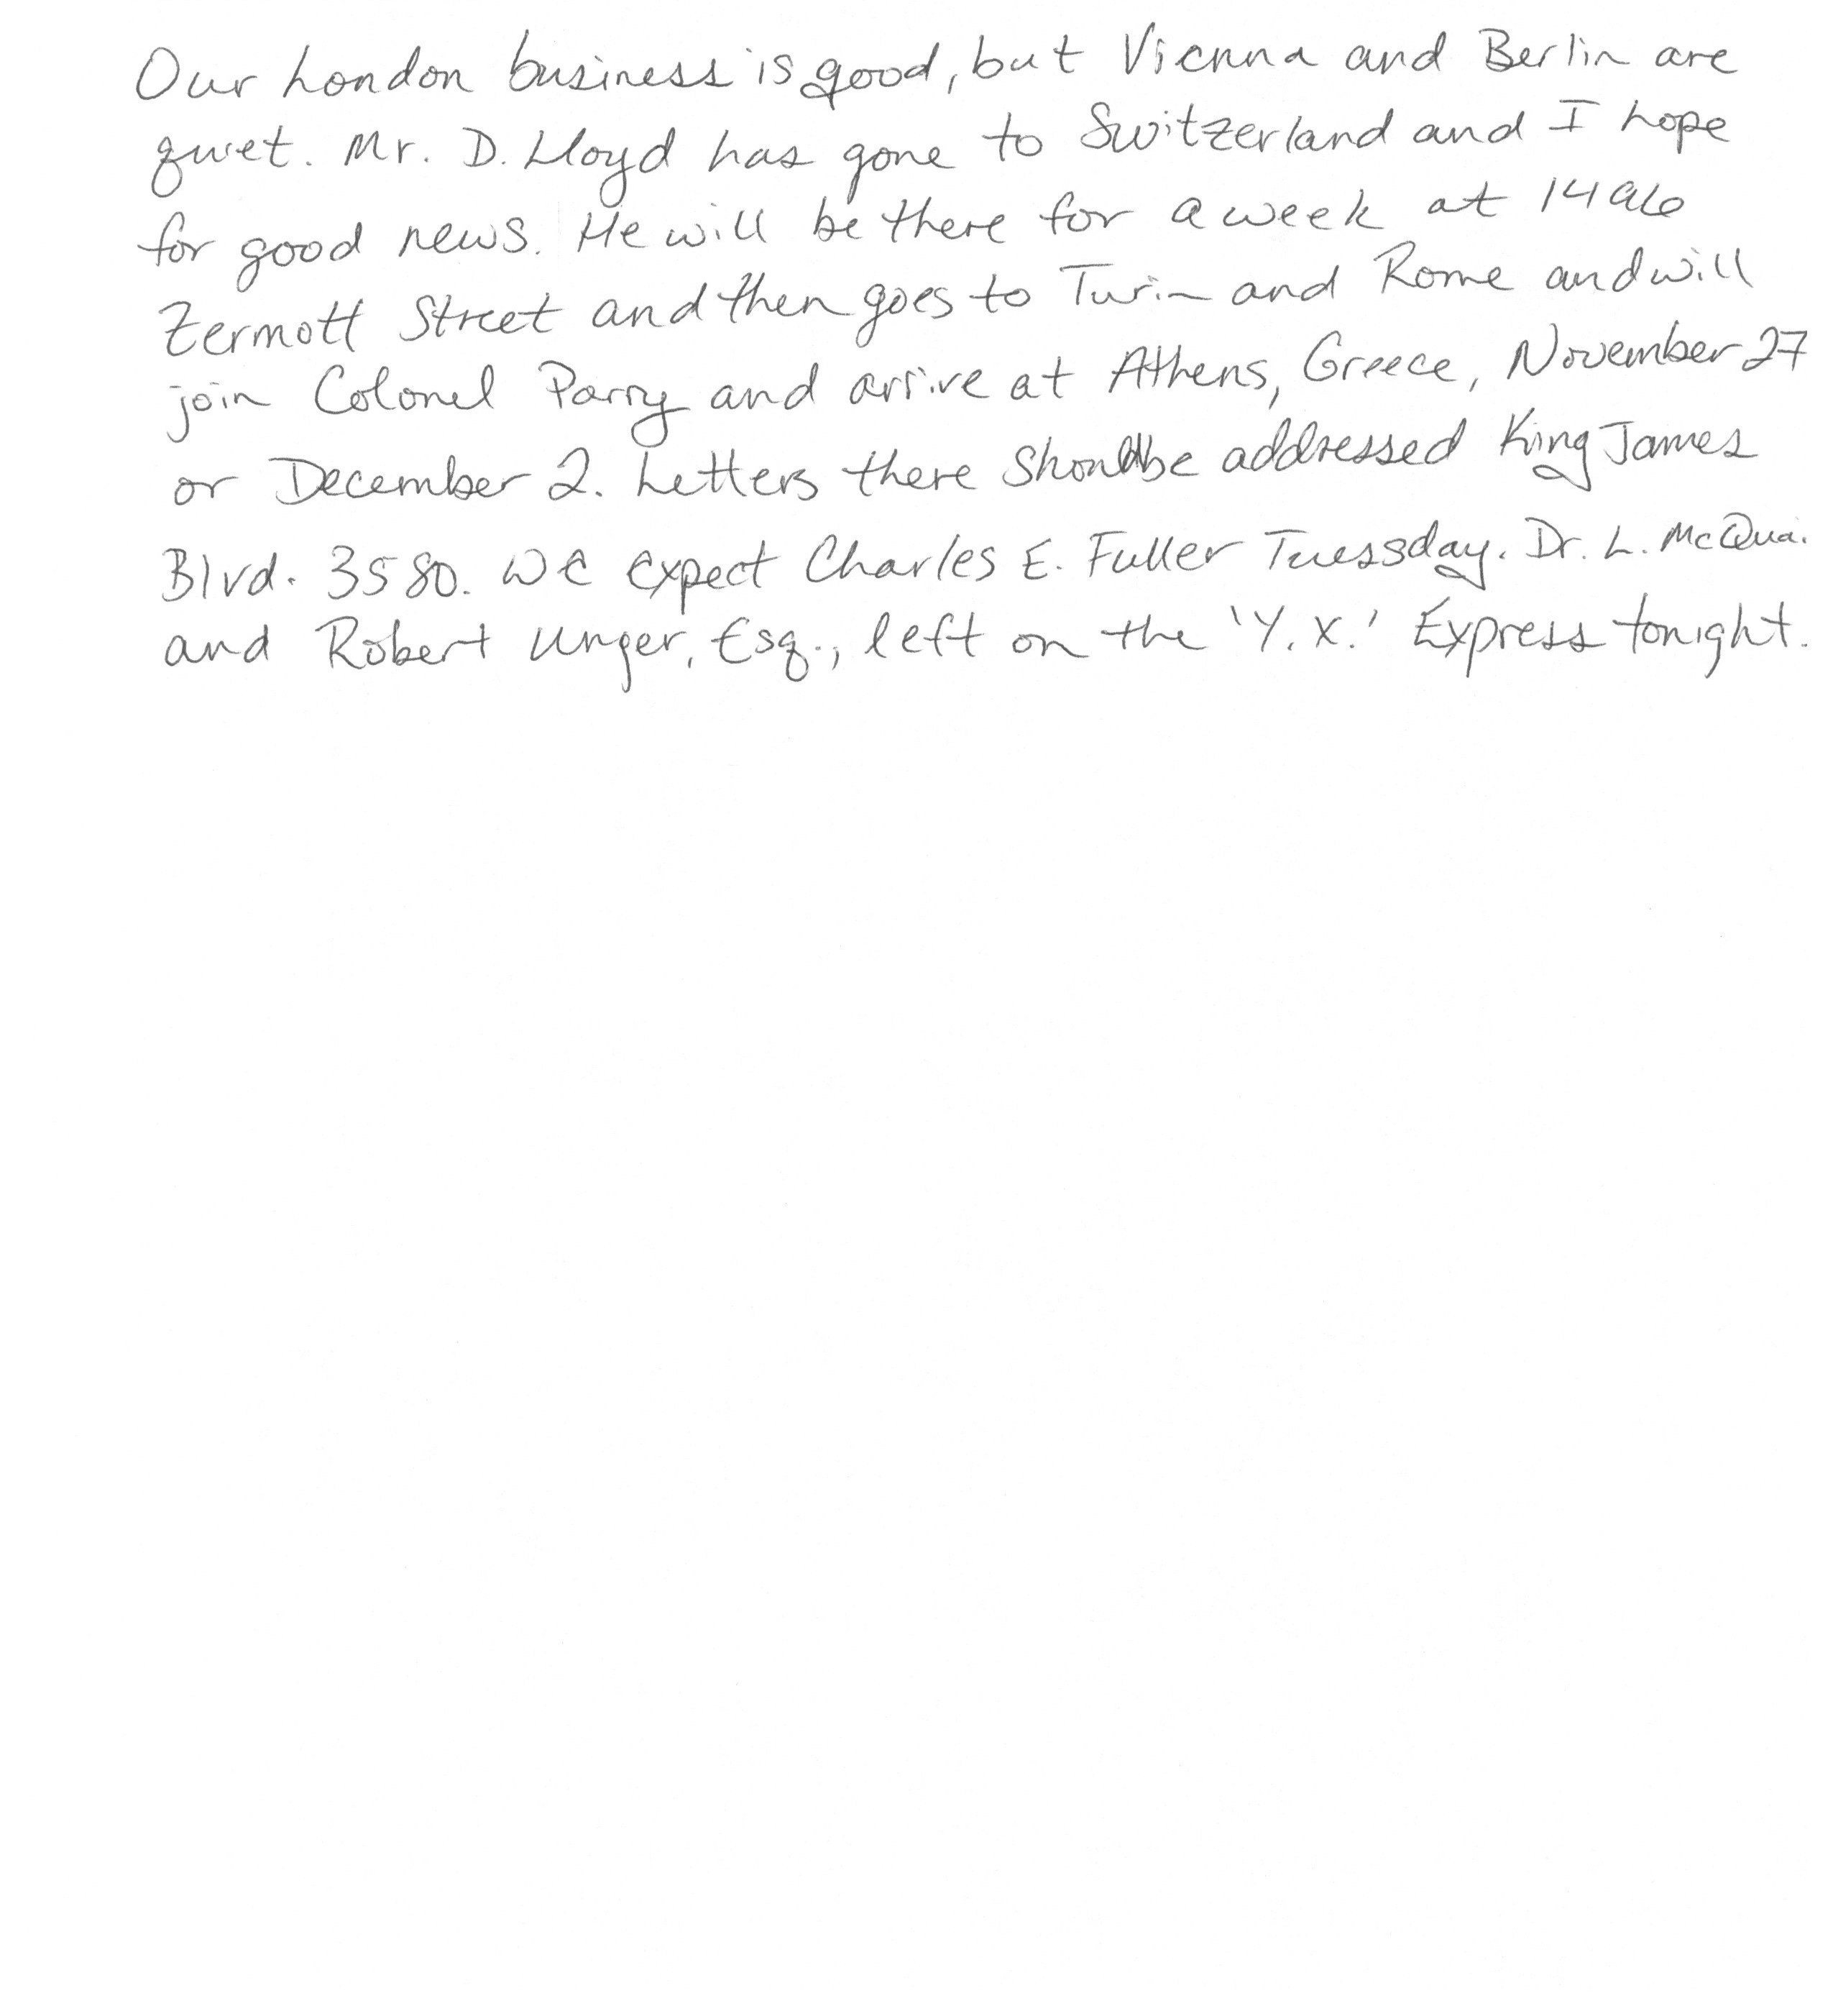 Our London business is good, but Vienna and Berlin are
quiet. Mr. D. Lloyd has gone to Switzerland and I hope
for good news. He will be there for a week at 1496
Zermott Street and then goes to Turin and Rome and will
join Colonel Parry and arrive at Athens, Greece, November 27
or December 2. Letters there should be addressed King James
Blvd. 3580. We expect Charles E. Fuller Tuessday. Dr. L. McQua.
and Robert Unger, Esq., left on the 'Y.X.' Express tonight.